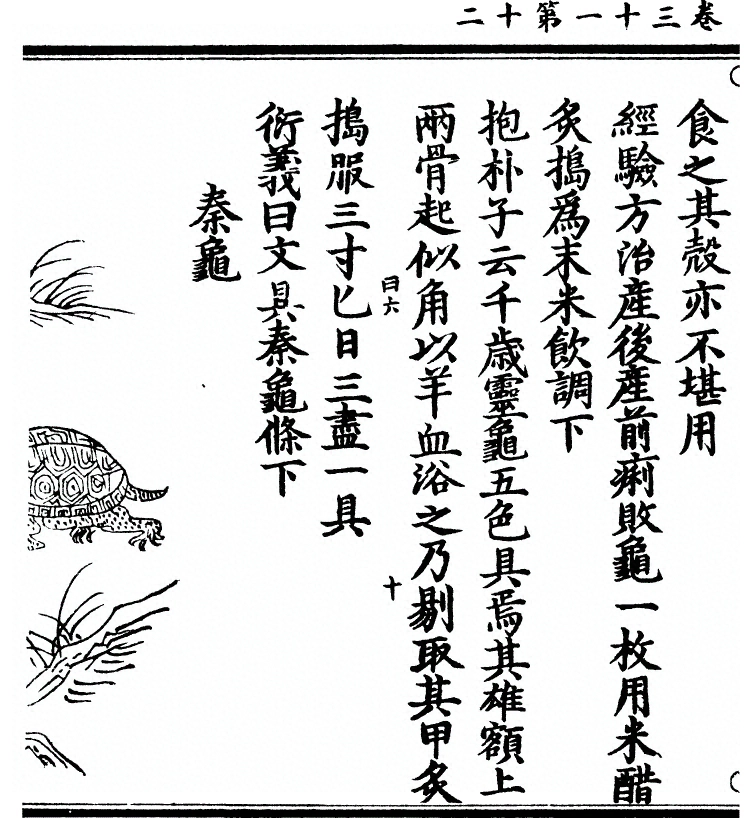 卷三十一第十二
食之其殼亦不堪用
經驗方治產後產前痢敗龜一枚用米醋
炙搗爲末米飲調下
抱朴子云千歲靈龜五色具焉其雄額上
兩骨起似角以羊血浴之乃剔取其甲炙
曰六
十
搗服三寸匕日三盡一具
衍義曰文具秦龜條下
秦龜